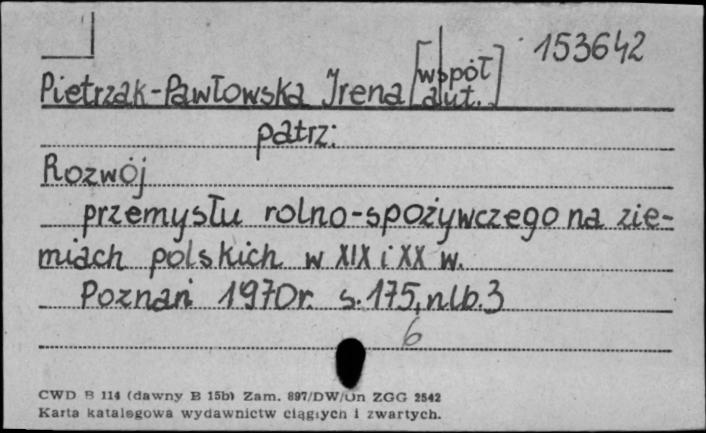 153642
Pietrzak-Pawłowska Irena [współ
aut.]
patrz:
Rozwój
przemysłu rolno-spożywczego na zie-
miach polskich w XIX i XX w.
Poznań 1970r. s. 175, nlb. 3
6
CWD B 114 (dawny B 15b) Zam. 897/DW/Un ZGG 2542
Karta katalogowa wydawnictw ciągłych i zwartych.